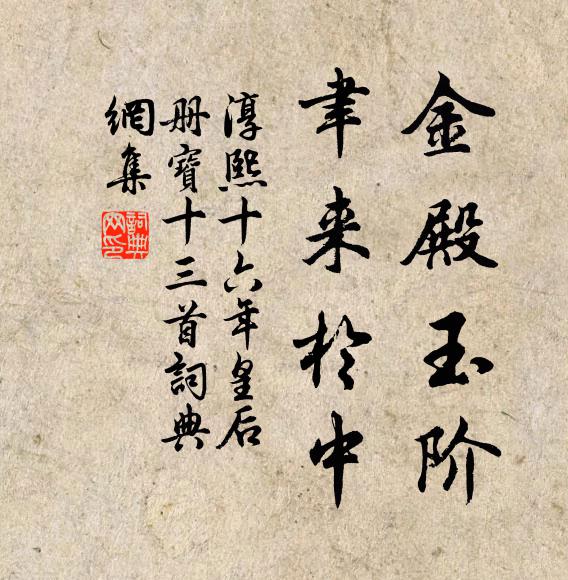 金殿玉阶
聿来於中
淳熙十六年皇后
册寳十三首詞典
網集
詞典网印